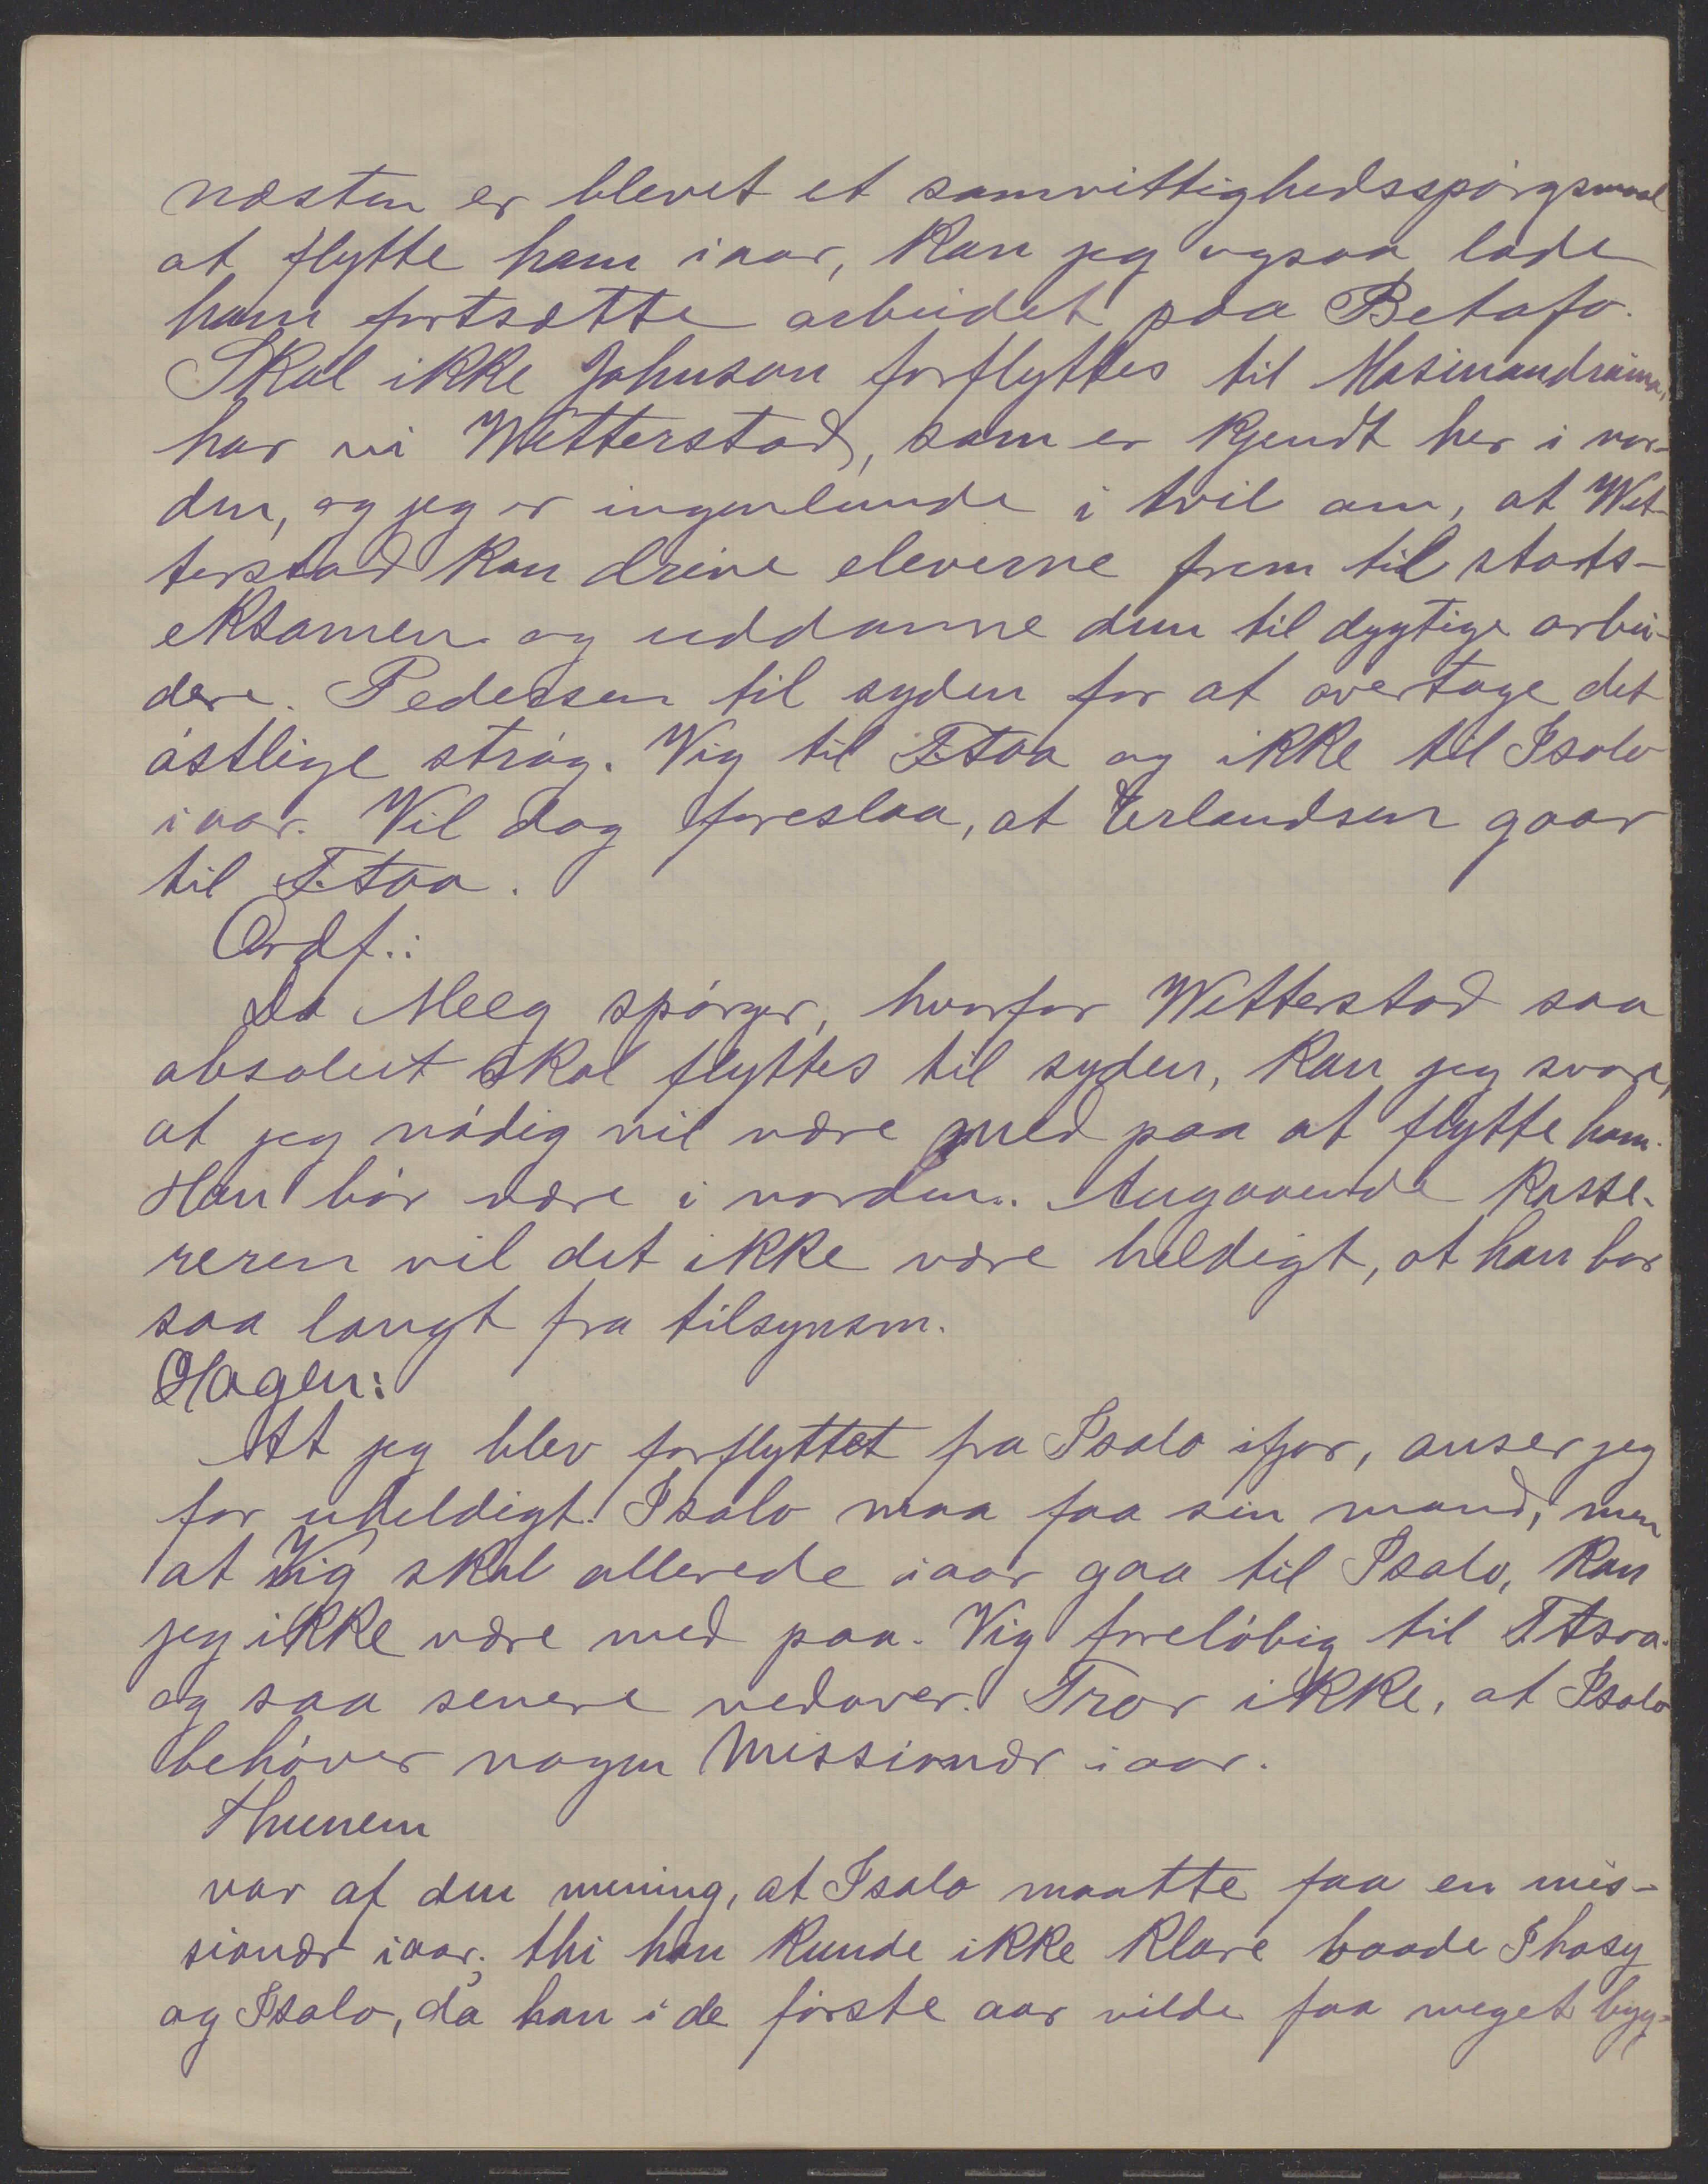 næsten er blevet et samvittighedsspørgsmaal
at flytte ham iaar, kan jeg ogsaa lade
ham fortsætte arbeidet paa Betafo.
Skal ikke Johnson forflyttes til Masinandraina,
har vi Wetterstad, som er kjendt her i nor-
den, og jeg er ingenlunde i tvil om, at Wet-
terstad kan drive eleverne frem til stats-
eksamen og uddanne dem til dygtige arbei-
dere. Pedersen til syden for at overtage det
østlige strøg. Vig til F.tsoa og ikke til Isalo
iaar. Vil dog foreslaa, at Erlandsen gaar
til F.tsoa.
Ordf.:
Da Meeg spørger, hvorfor Wetterstad saa
absolut skal flyttes til syden, kan jeg svare,
at jeg nødig vil være med paa at flytte ham.
Han bør være i norden. Angaaende kasse-
reren vil det ikke være heldigt, at han bor
saa langt fra tilsynsm.
Hagen:
At jeg blev forflyttet fra Isalo ifjor, anser jeg
for uheldigt. Isalo maa faa sin mand, men
at Vig skal allerede iaar gaa til Isalo, kan
jeg ikke være med paa. Vig foreløbig til F.tsoa.
og saa senere nedover. Tror ikke, at Isalo
behøver nogen missionær iaar.
Thunem
var af den mening, at Isalo maatte faa en mis-
sionær iaar; thi han kunde ikke klare baade Ihosy
og Isalo, da han i de første aar vilde faa meget byg-